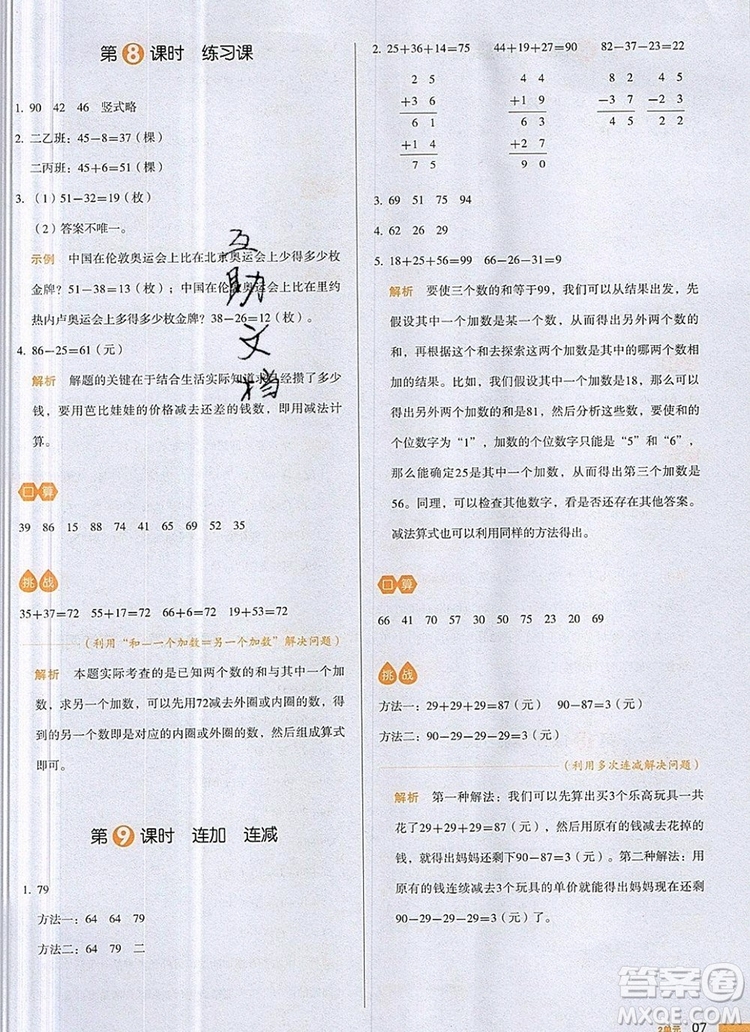 第8课时 练习课
1. 90 42 46 竖式略
2. 二乙班：45－8＝37（棵）
二丙班：45＋6＝51（棵）
3. （1）51－32＝19（枚）
（2）答案不唯一。
示例 中国在伦敦奥运会上比在北京奥运会上少得多少枚
金牌？51－38＝13（枚）；中国在伦敦奥运会上比在里约
热内卢奥运会上多得多少枚金牌？38－26＝12（枚）。
4. 86－25＝61（元）
解析 解题的关键在于结合生活实际知道求已经攒了多少
钱，要用芭比娃娃的价格减去还差的钱数，即用减法计
算。
口算
39 86 15 88 74 41 65 69 52 35
挑战
35＋37＝72 55＋17＝72 66＋6＝72 19＋53＝72
（利用“和－一个加数＝另一个加数”解决问题）
解析 本题实际考查的是已知两个数的和与其中一个加
数，求另一个加数，可以先用72减去外圈或内圈的数，得
到的另一个数即是对应的内圈或外圈的数，然后组成算式
即可。
第9课时 连加 连减
1. 79
方法一：64 64 79
方法二：64 79 二
2. 25＋36＋14＝75 27＋43＋20＝90 82－37－23＝22
3. 69 51 75 94
4. 62 26 29
5. 18＋25＋56＝99 66－26－31＝9
解析 要使三个数的和等于99，我们可以从结果出发，先
假设其中一个加数是某一个数，那么得出另外两个数的
和，再从和出发去探索这两个加数分别是题中的哪两个
加数是可以的。比如，我们先假设其中一个加数是18，那
么得出另外两个加数的和是81，然后分析这些数，要使和的
个位数字为“1”，加数的个位数字只能是“5”和“6”，
那么能确定25是其中一个加数，于是另外一个加数是
56。同理，可以检查其他数字，看看是否存在其他答案。
减法算式也可以利用同样的方法得出。
口算
66 41 70 57 30 50 75 23 20 69
挑战
方法一：29＋29＋29＝87（元） 90－87＝3（元）
方法二：90－29－29－29＝3（元）
（利用多次连减解决问题）
解析 第一种解法：我们可以先算出买3个乐高玩具一共
花了29＋29＋29＝87（元），然后用原有的钱减去花掉的
钱，就得出妈妈还剩90－87＝3（元）。第二种解法：用
原有的钱连续减去3个玩具的单价就能得出妈妈还剩
90－29－29－29＝3（元）了。
互助文档
答案圈
MXQE.COM
2单元 07